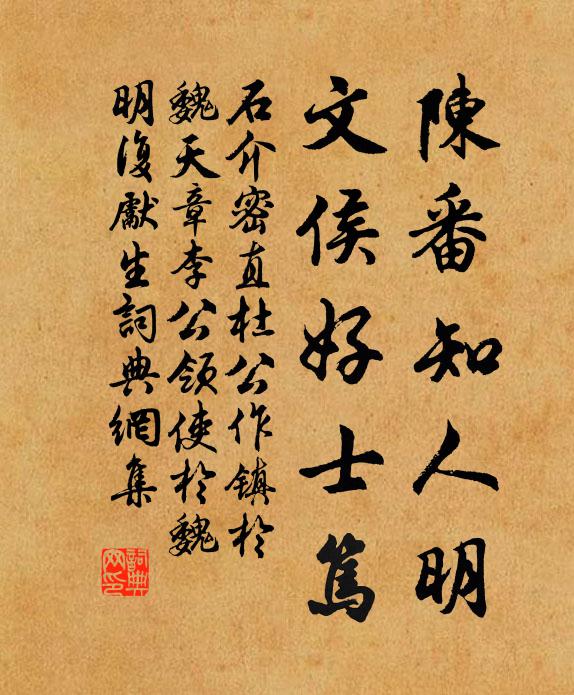 陳番知人明
文侯好士篤
石介密直杜公作鎮於
魏天章李公領使於魏
明復獻生詞典網集
詞典
网印